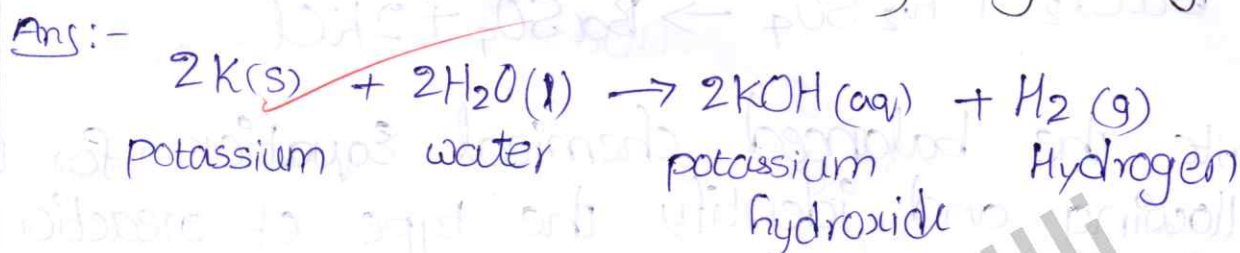 Ans:-
2K(s) + 2H₂O(l) → 2KOH(aq) + H₂(g)
potassium water potassium Hydrogen
hydroxide